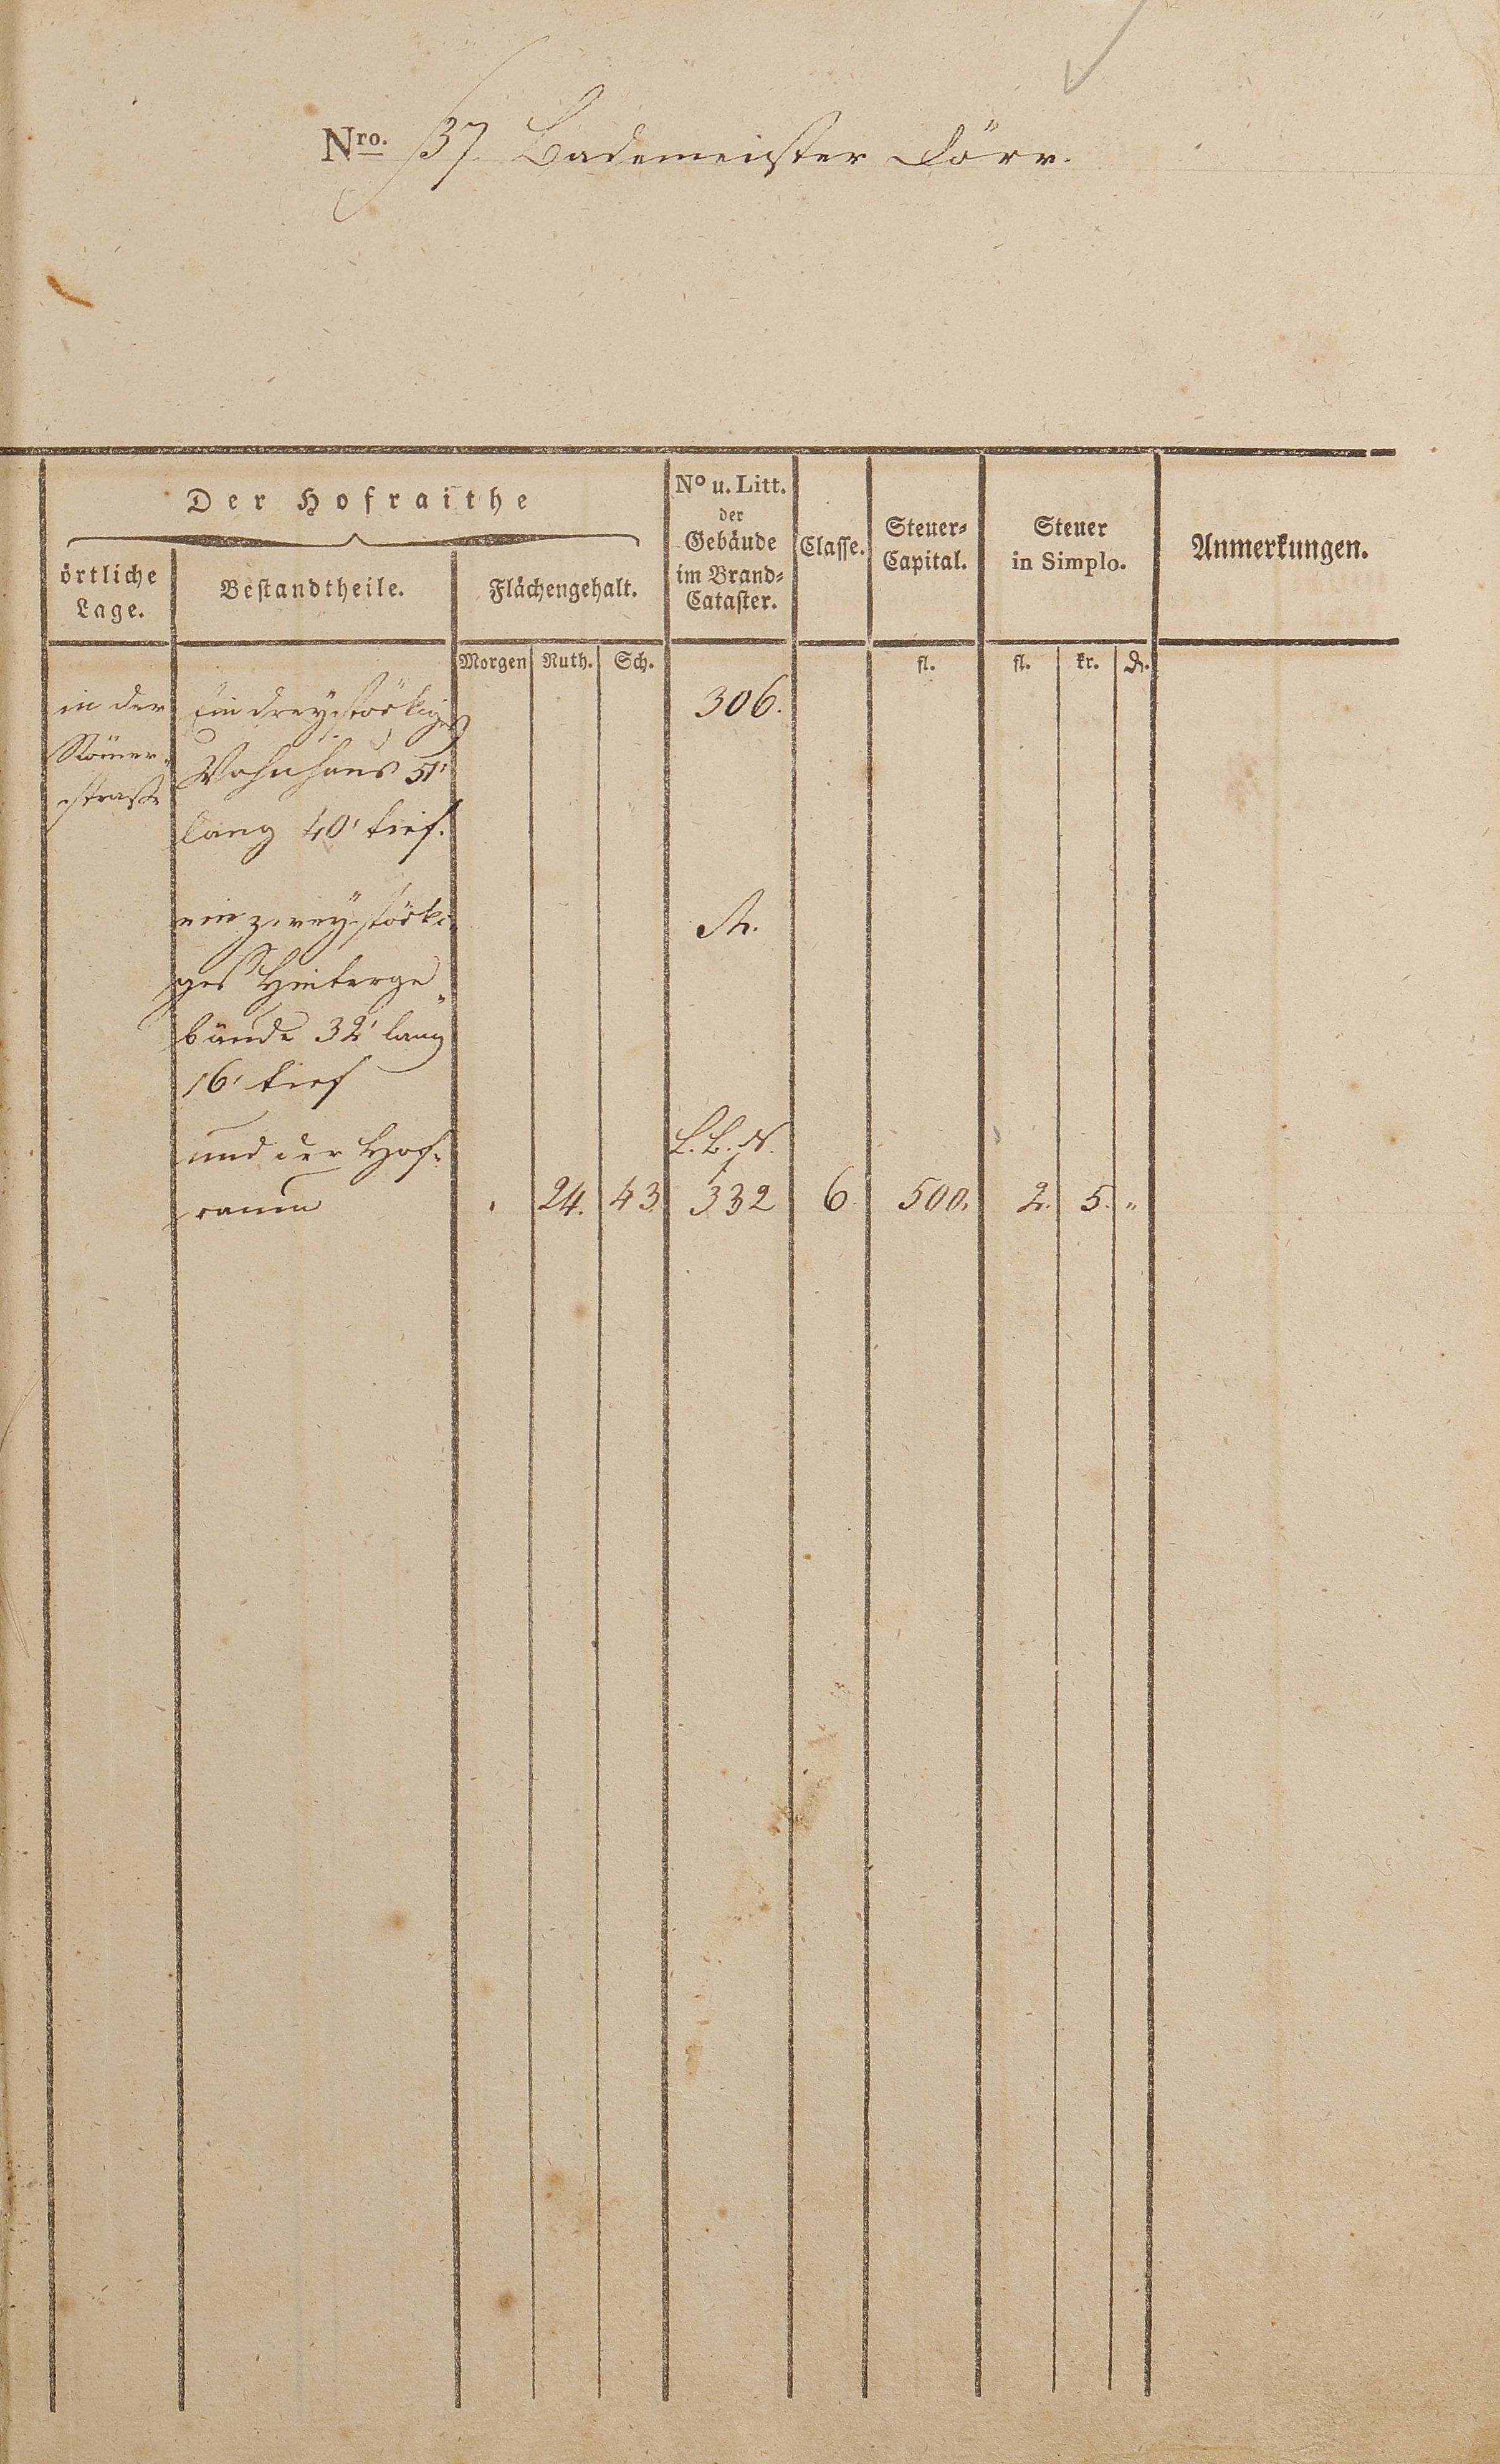 Nro. 37 Bademeister Dörr.
Der Hofraithe
örtliche
Lage.
Bestandtheile.
Flächengehalt.
No u. Litt.
der
Gebäude
im Brand-
Cataster.
Classe.
Steuer-
Capital.
Steuer
in Simplo.
Anmerkungen.
Morgen Ruth. Sch.
fl.
fl. kr. d.
in der
Römer-
straße
Ein dreystöckiges
Wohnhaus 51'
lang 40' tief.
306.
ein zweystöcki-
ges Hinterge
bäude 32' lang
16' tief
und der Hof-
raum
24. 43. 332 6. 500. 2. 5. "